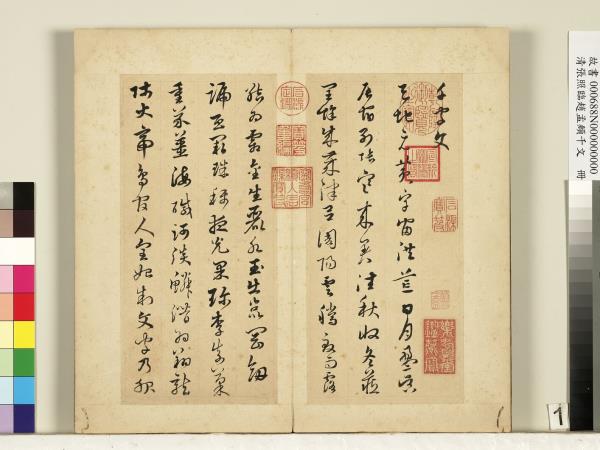 故書 000688N000000000
清張照臨趙孟頫千文 冊
千字文
天地元黃宇宙洪荒日月盈昃
辰宿列張寒來暑往秋收冬藏
閏餘成歲律呂調陽雲騰致雨露
結為霜金生麗水玉出崑岡劍
號巨闕珠稱夜光果珍李柰菜
重芥薑海鹹河淡鱗潛羽翔龍
師火帝鳥官人皇始制文字乃服
1